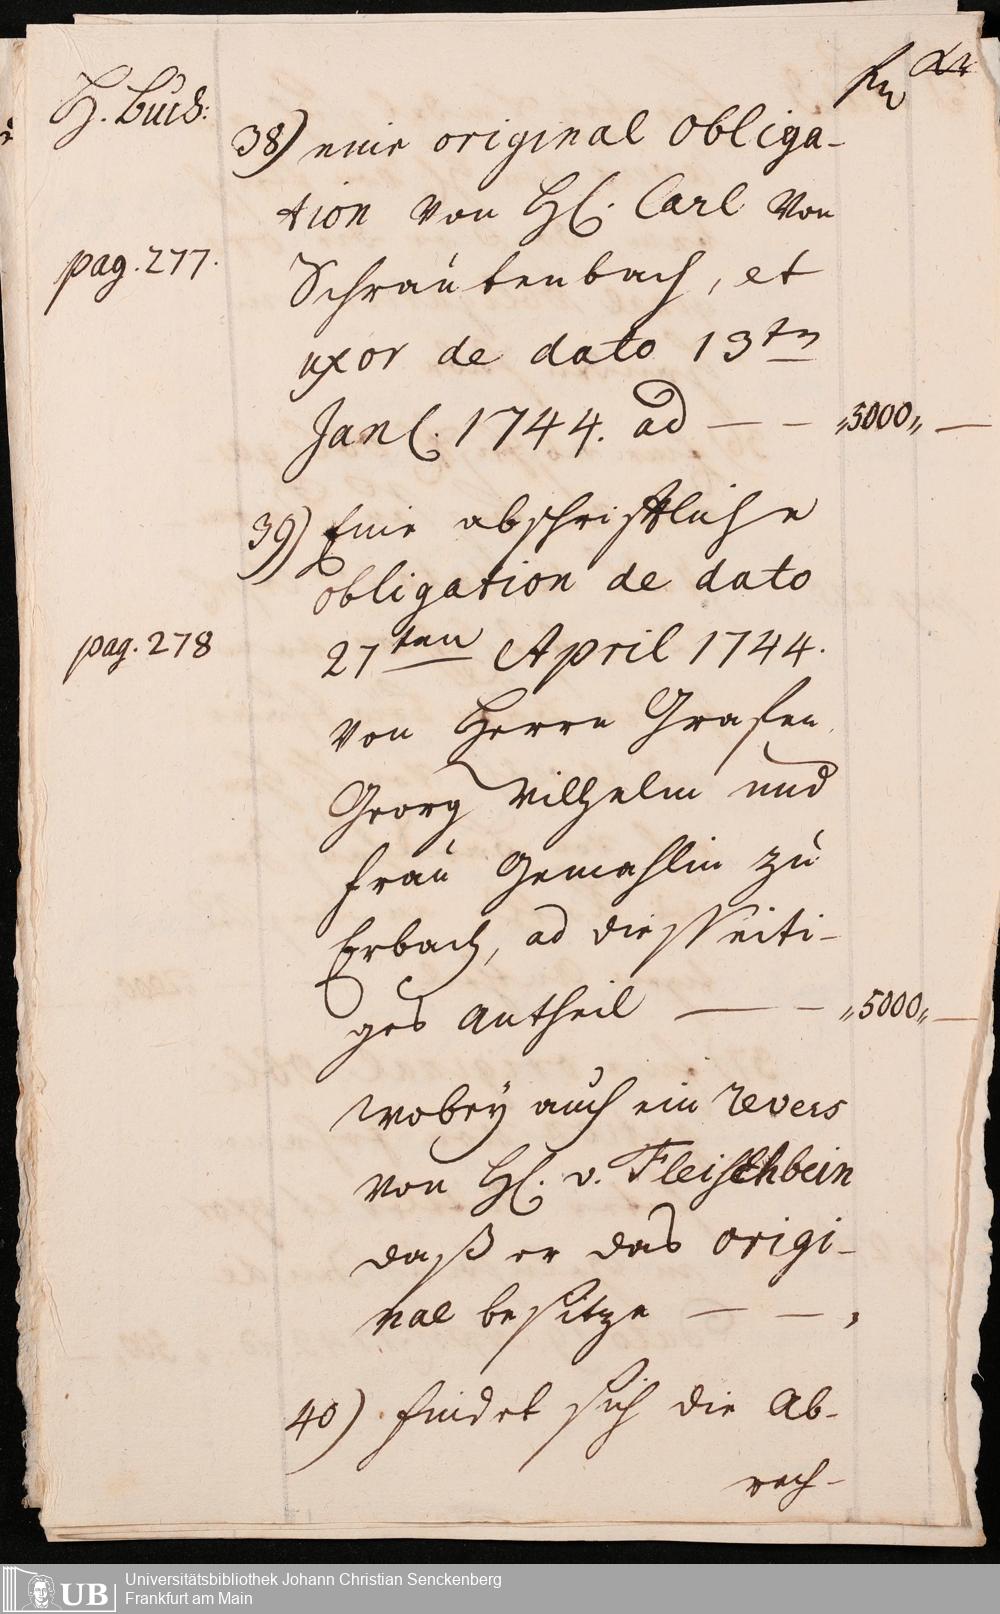 H. Buch:
fl xr
38) eine original obliga-
tion von H. Carl von
pag. 277.
Schrautenbach, et
uxor de dato 13tn
Jan. 1744. ad — — „5000„ —
39) Eine abschriftliche
obligation de dato
pag. 278
27ten April 1744.
von Herrn Grafen
Georg Wilhelm und
Frau Gemahlin zu
Erbach, ad diesseiti-
ges Antheil — — „5000„ —
wobey auch ein revers
von H. v. Fleischbein
daß er das origi-
nal besitze — — ,
40) findet sich die Ab-
rech-
UB
Universitätsbibliothek Johann Christian Senckenberg
Frankfurt am Main